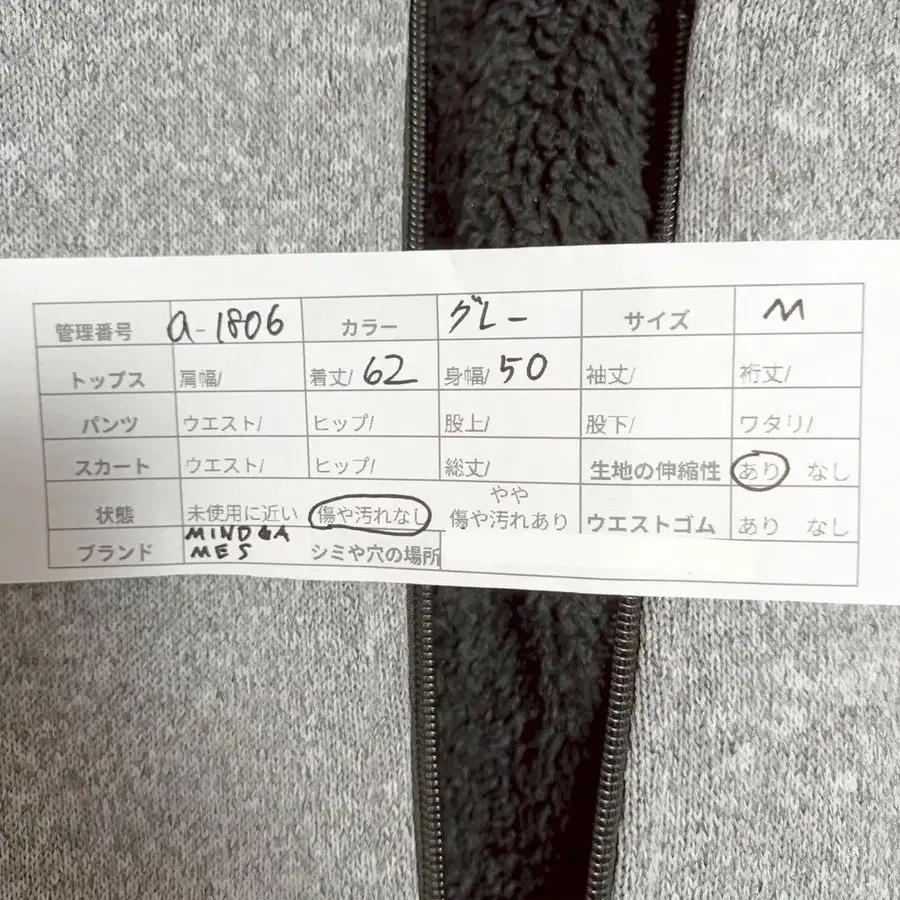 管理番号 a-1806 カラー グレー サイズ M
トップス 肩幅/ 着丈/62 身幅/50 袖丈/ 裄丈/
パンツ ウエスト/ ヒップ/ 股上/ 股下/ ワタリ/
スカート ウエスト/ ヒップ/ 総丈/ 生地の伸縮性 あり なし
状態 未使用に近い 傷や汚れなし やや 傷や汚れあり ウエストゴム あり なし
ブランド MINDGA MES シミや穴の場所